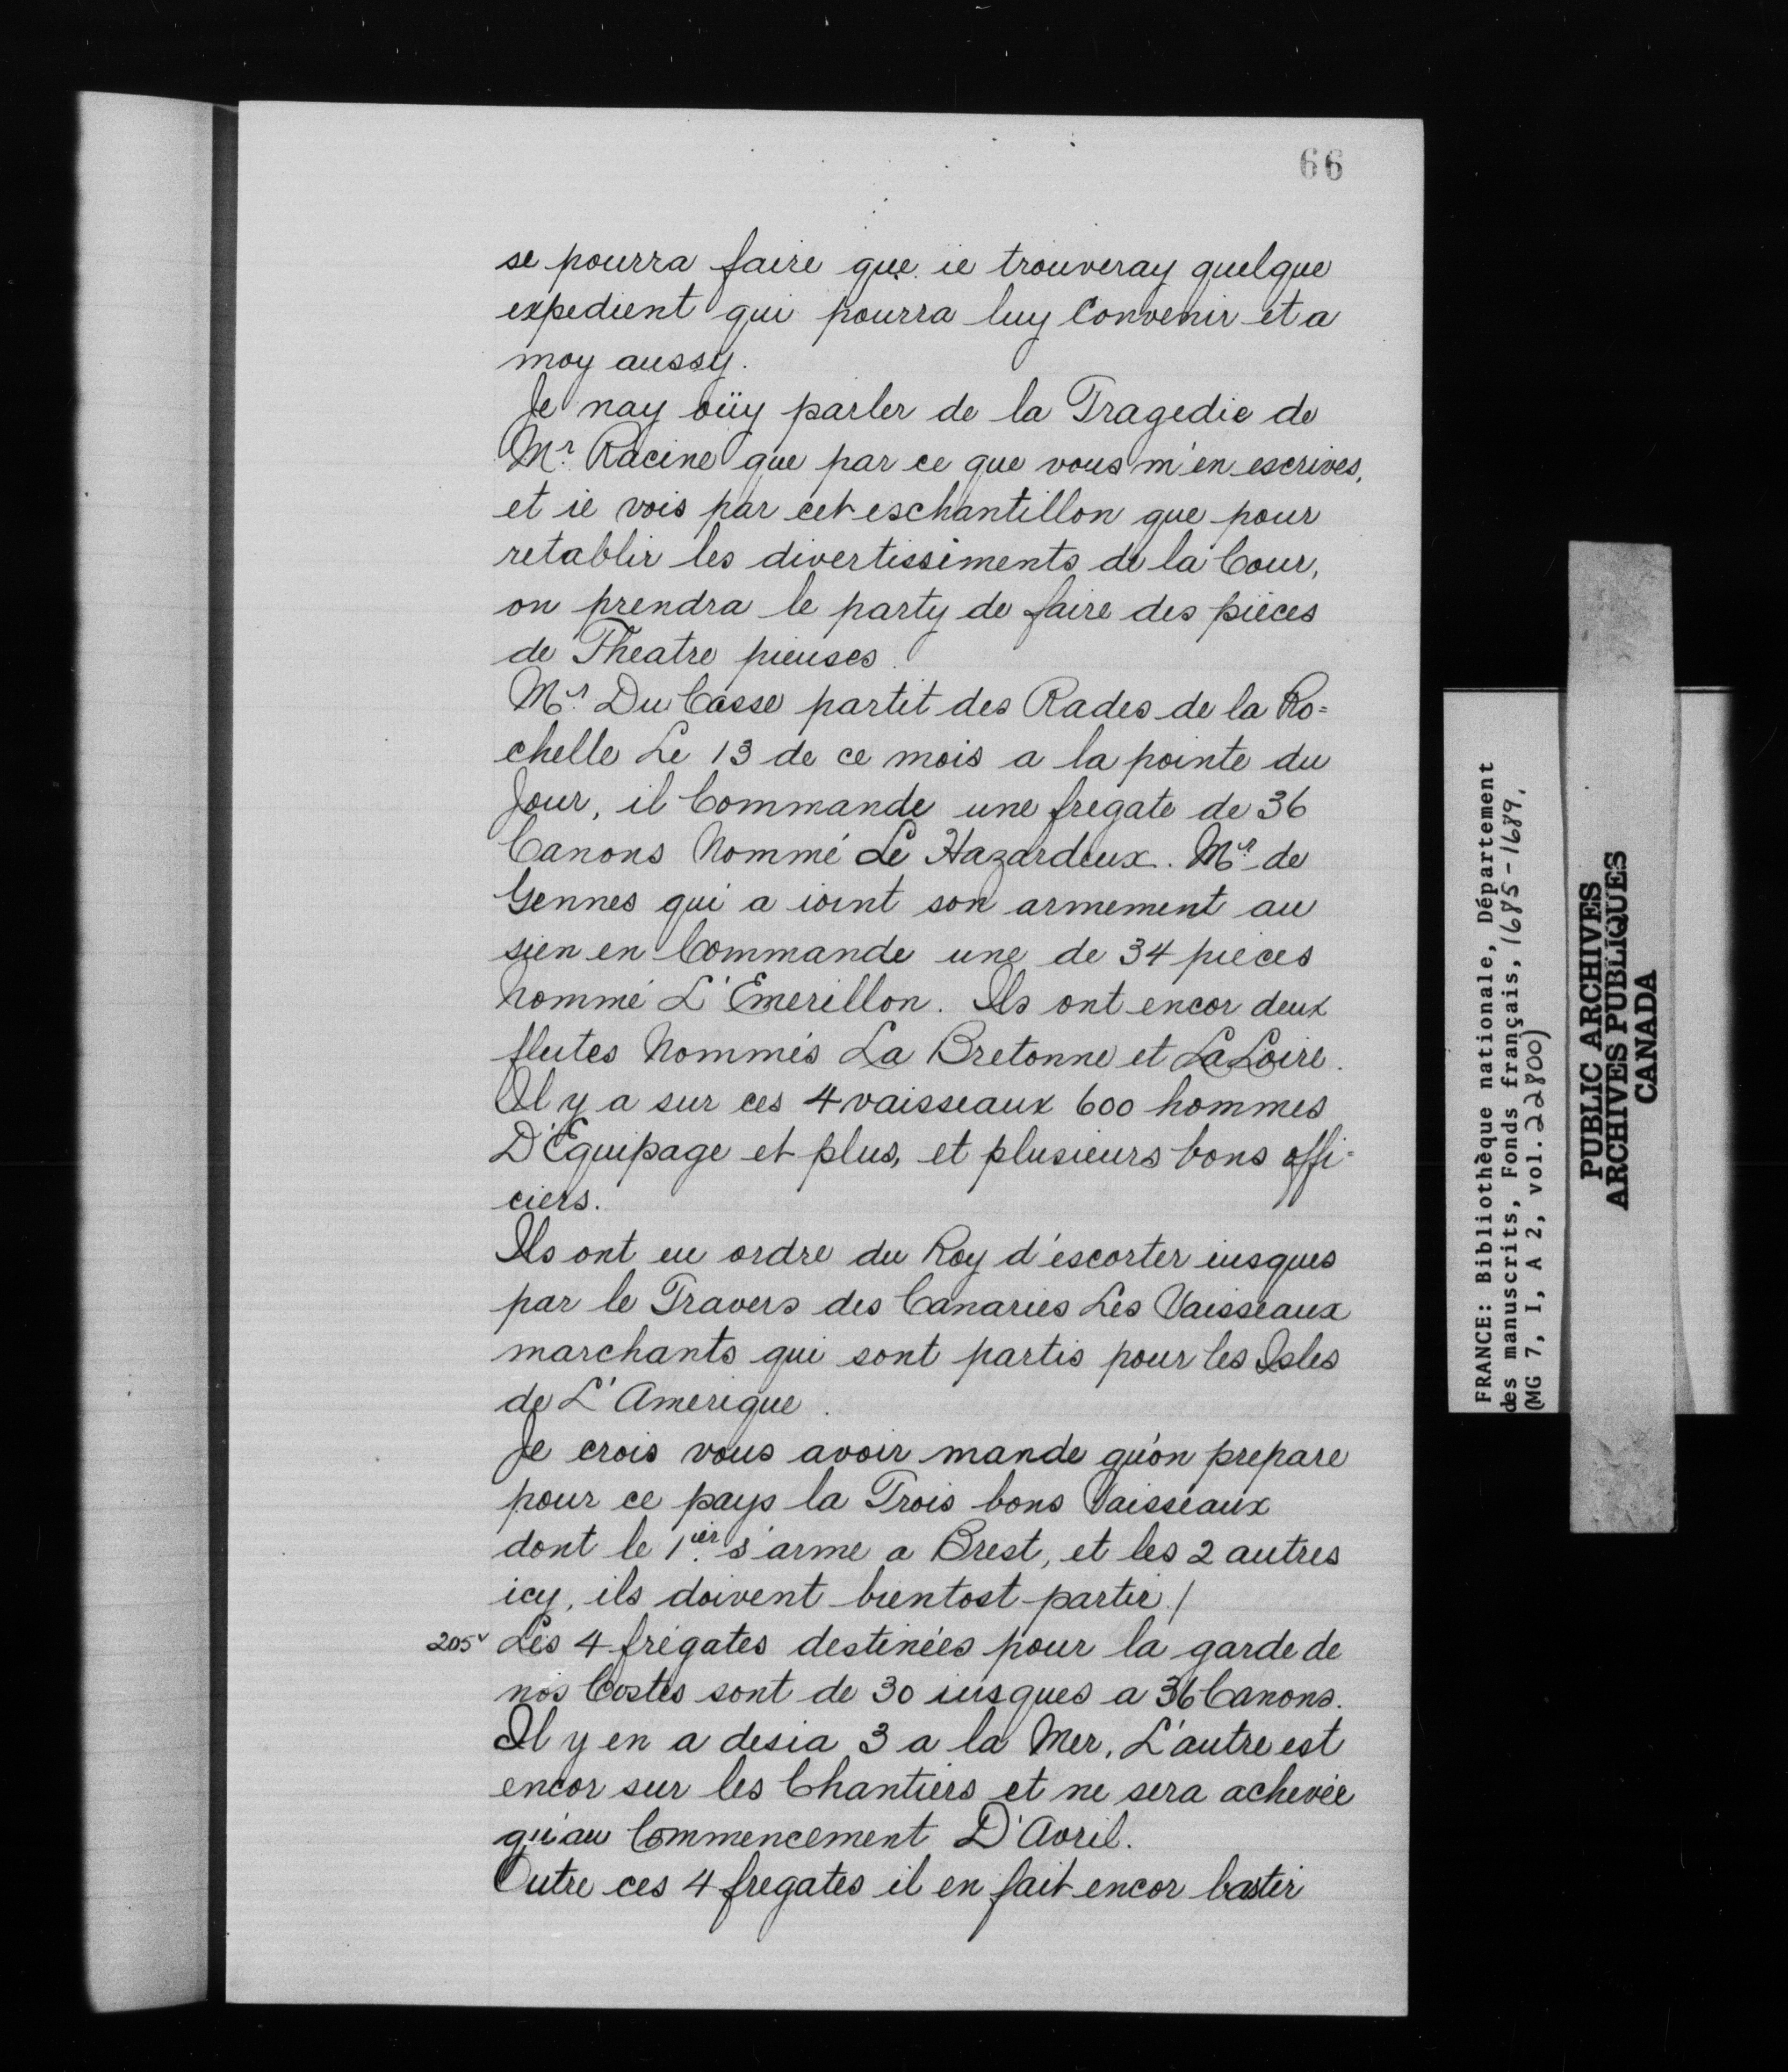 66
se pourra faire que ie trouveray quelque
expedient qui pourra luy Convenir et a
moy aussy.
Je nay oüy parler de la Tragedie de
Mr. Racine que par ce que vous m'en escrives,
et ie vois par cet eschantillon que pour
retablir les divertissements de la Cour,
on prendra le party de faire des pièces
de Theatre pieuses.
Mr. Du Casse partit des Rades de la Ro=
chelle Le 13 de ce mois a la pointe du
Jour, il Commande une fregate de 36
Canons Nommé Le Hazardeux. Mr. de
Gennes qui a ioint son armement au
sien en Commande une de 34 pieces
Nommé L'Emerillon. Ils ont encor deux
flutes Nommés La Bretonne et La Loire.
Il y a sur ces 4 vaisseaux 600 hommes
D'Equipage et plus, et plusieurs bons offi=
ciers.
Ils ont eu ordre du Roy d'escorter iusques
par le Travers des Canaries Les Vaisseaux
marchants qui sont partis pour les Isles
de L'Amerique.
Je crois vous avoir mande qu'on prepare
pour ce pays la Trois bons Vaisseaux
dont le 1.ier s'arme a Brest, et les 2 autres
icy, ils doivent bientost partir./
205v Les 4 frégates destinées pour la garde de
nos Costes sont de 30 iusques a 36 Canons.
Il y en a desia 3 a la Mer, L'autre est
encor sur les Chantiers et ne sera achevée
qu'au Commencement D'Avril.
Outre ces 4 fregates il en fait encor bastir
FRANCE: Bibliothèque nationale, Département
des manuscrits, Fonds français, 1685-1689,
(MG 7, I, A 2, vol. 22800)
PUBLIC ARCHIVES
ARCHIVES PUBLIQUES
CANADA